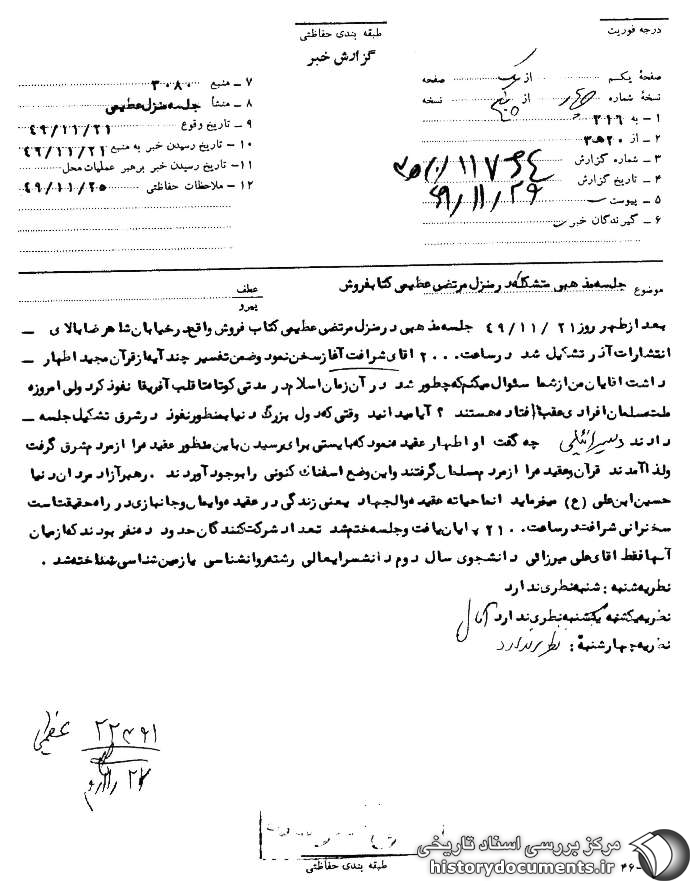 درجه فوریت
طبقه بندی حفاظتی
گزارش خبر
صفحهٔ یکم از یک صفحه
نسخهٔ شماره چهار از پنج نسخه
۱ ـ به ۳۱۶
۲ ـ از ۲۰ ه ۳
۳ ـ شماره گزارش
۴ ـ تاریخ گزارش ۴۹/۱۱/۲۶
۵ ـ پیوست
۶ ـ گیرندگان خبر
۷ ـ منبع ۳۰۸۰
۸ ـ منشأ جلسه منزل عظیمی
۹ ـ تاریخ وقوع ۴۹/۱۱/۲۱
۱۰ ـ تاریخ رسیدن خبر به منبع ۴۹/۱۱/۲۱
۱۱ ـ تاریخ رسیدن خبر برهبر عملیات محل
۱۲ ـ ملاحظات حفاظتی ۴۹/۱۱/۲۵
موضوع جلسه مذهبی متشکله در منزل مرتضی عظیمی کتابفروش
عطف
پیرو
بعد از ظهر روز ۲۱/۱۱/۴۹ جلسه مذهبی در منزل مرتضی عظیمی کتاب فروش واقع در خیابان شاهرضا بالای ـ
انتشارات آذر تشکیل شد در ساعت ۲۰۰۰ اقای شرافت آغاز سخن نمود وضمن تفسیر چند آیه از قرآن مجید اظهار ـ
داشت اقایان من از شما سئوال میکنم که چطور شد در آن زمان اسلام در مدتی کوتاه تا قلب آفریقا نفوذ کرد ولی امروزه
ملت مسلمان افرادی عقب افتاده هستند ؟ آیا میدانید وقتی که دول بزرگ دنیا بمنظور نفوذ در شرق تشکیل جلسه ـ
دادند چه گفت او اظهار عقیده نمود که بایستی برای رسیدن باین منظور عقیده را از مردم شرق گرفت
ولذا آمدند قرآن وعقیده را از مردم مسلمان گرفتند واین وضع اسفناک کنونی را بوجود آوردند . رهبر آزاد مردان دنیا
حسین ابن علی (ع) میفرماید انما حیاته عقیده والجهاد یعنی زندگی در عقیده وایمان وجانبازی در راه حقیقت است
سخنرانی شرافت در ساعت ۲۱۰۰ پایان یافت وجلسه ختم شد تعداد شرکت کنندگان حدود ده نفر بودند که از میان
آنها فقط اقای علی میرزائی دانشجوی سال دوم دانشسرایعالی رشته روانشناسی یا زمین شناسی شناخته شد .
نظریه شنبه : شنبه نظری ندارد
نظریه یکشنبه یکشنبه نظری ندارد
نظریه چهارشنبه : نظری ندارد
عظیمی
۲۲۴۶۱
طبقه بندی حفاظتی
مرکز بررسی اسناد تاریخی
historydocuments.ir